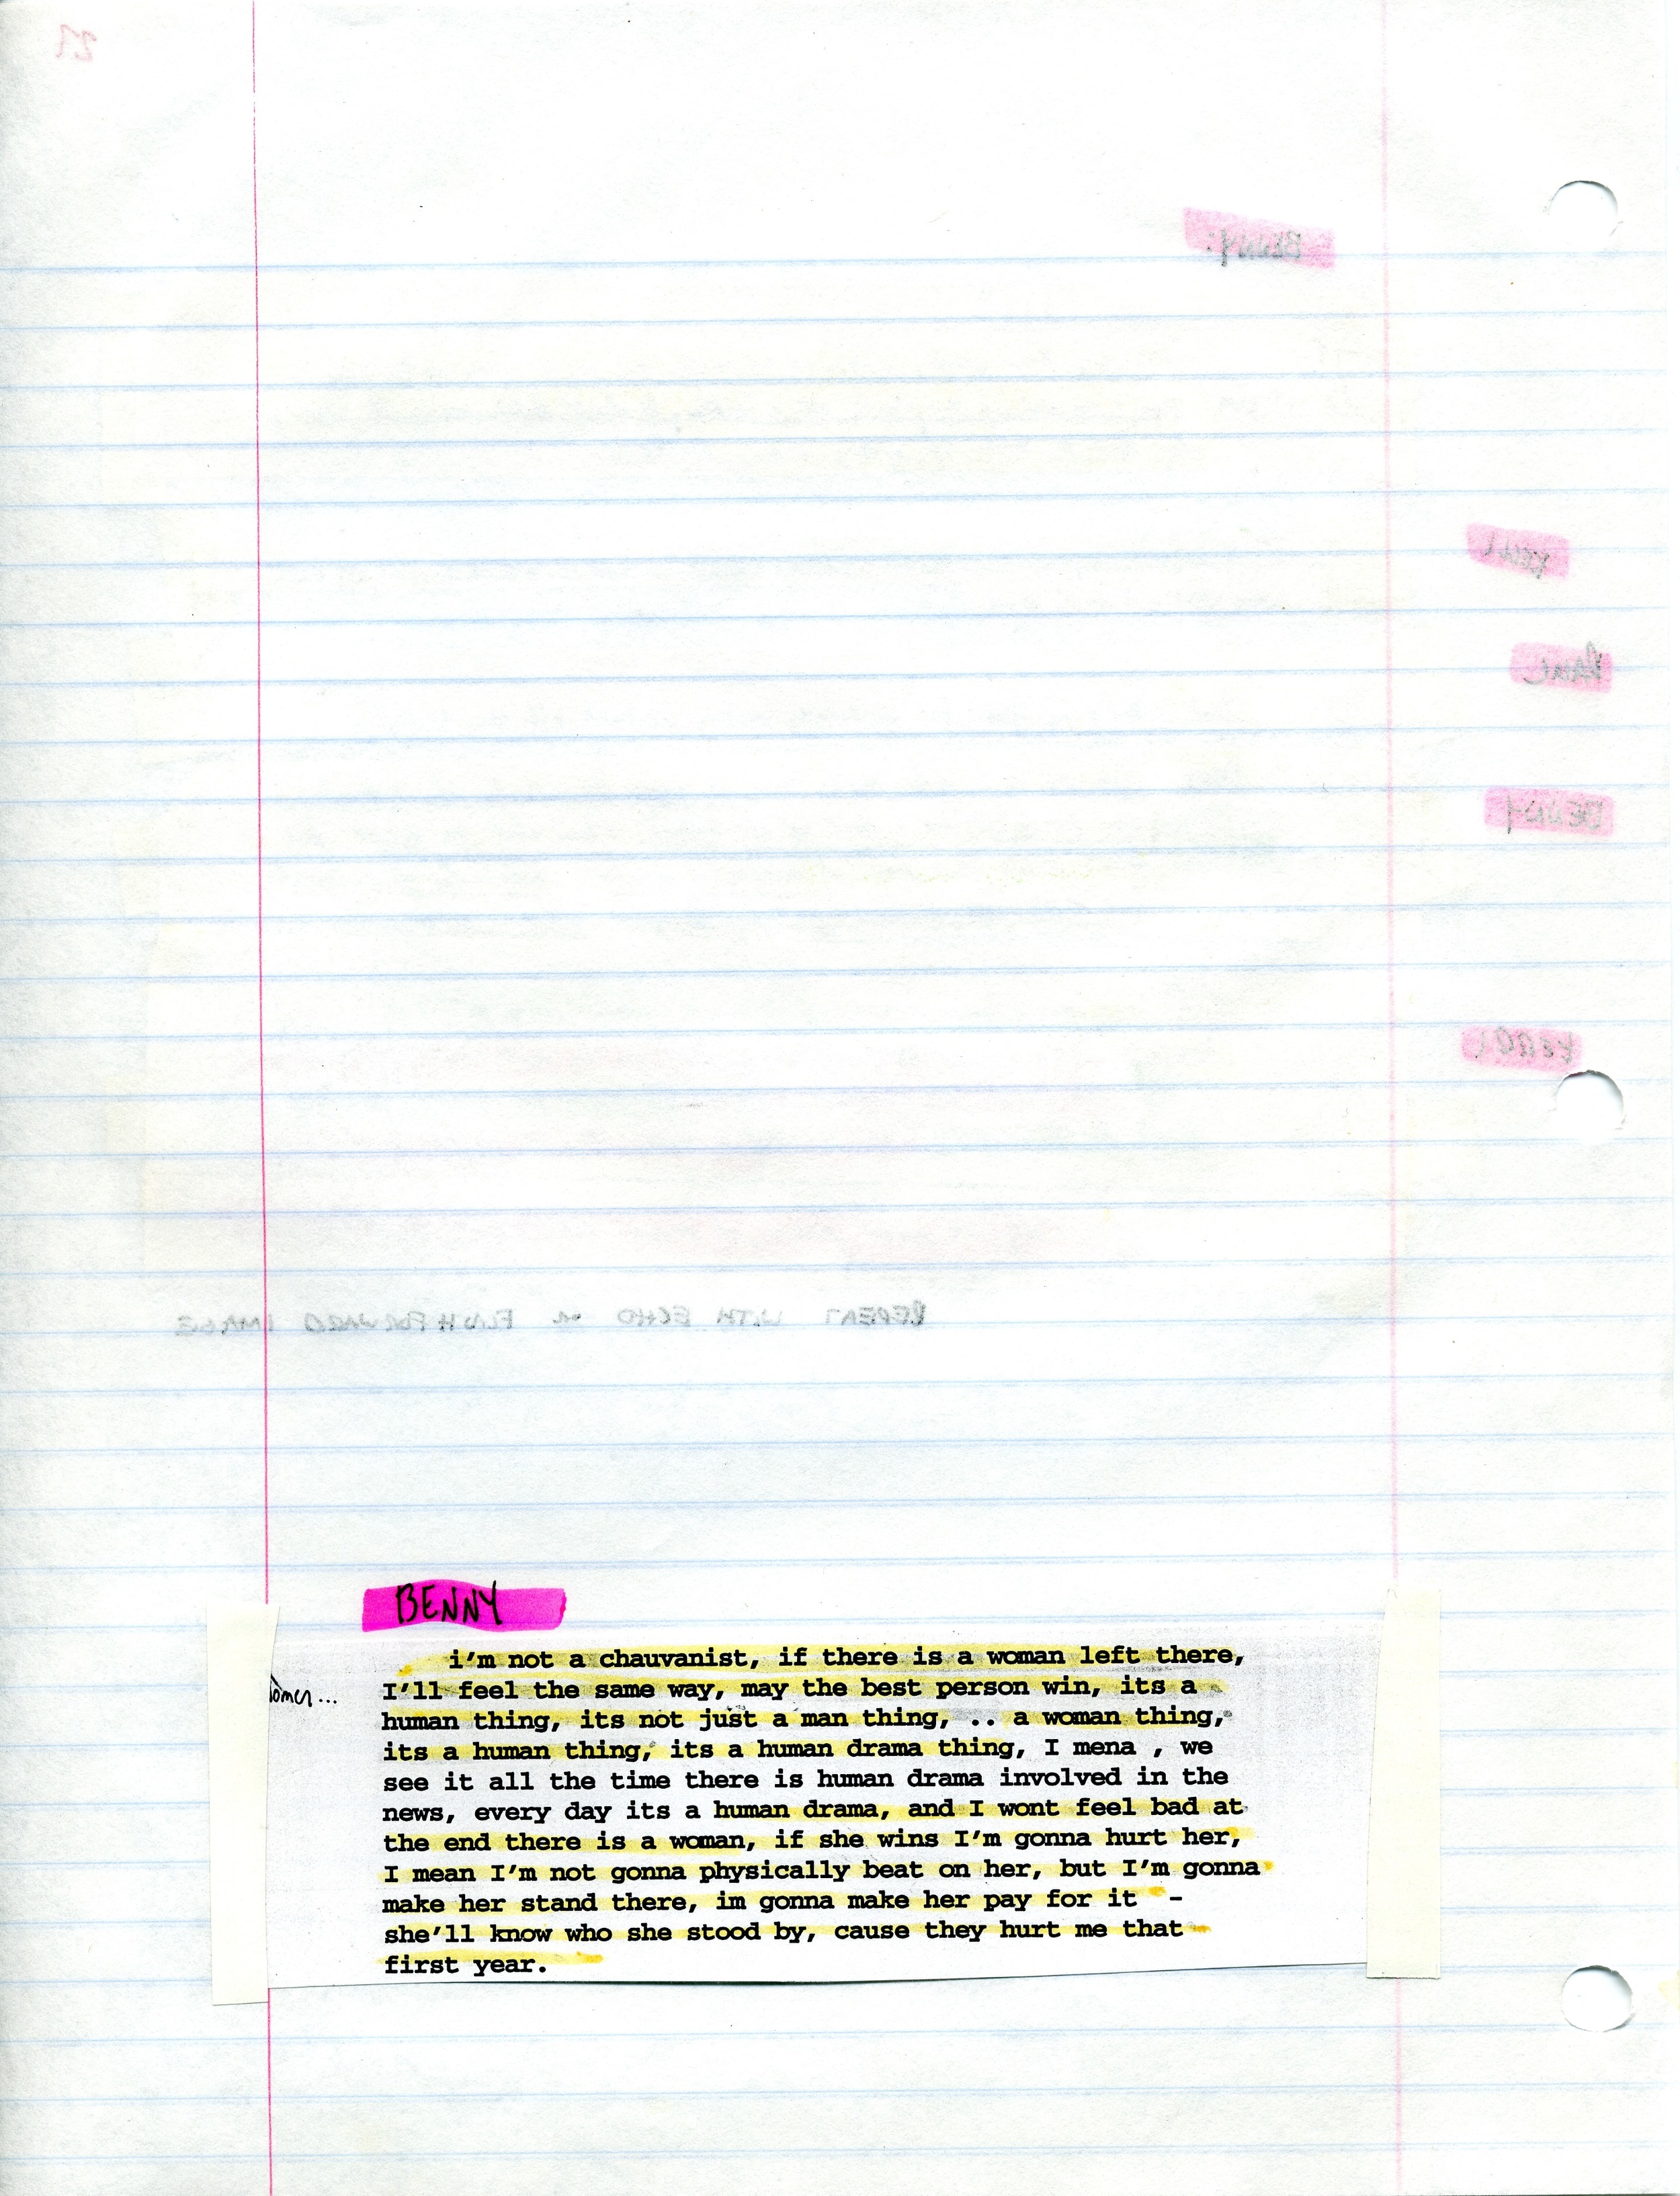 BENNY
i'm not a chauvanist, if there is a woman left there,
I'll feel the same way, may the best person win, its a
human thing, its not just a man thing, .. a woman thing,
its a human thing, its a human drama thing, I mena , we
see it all the time there is human drama involved in the
news, every day its a human drama, and I wont feel bad at
the end there is a woman, if she wins I'm gonna hurt her,
I mean I'm not gonna physically beat on her, but I'm gonna
make her stand there, im gonna make her pay for it -
she'll know who she stood by, cause they hurt me that
first year.